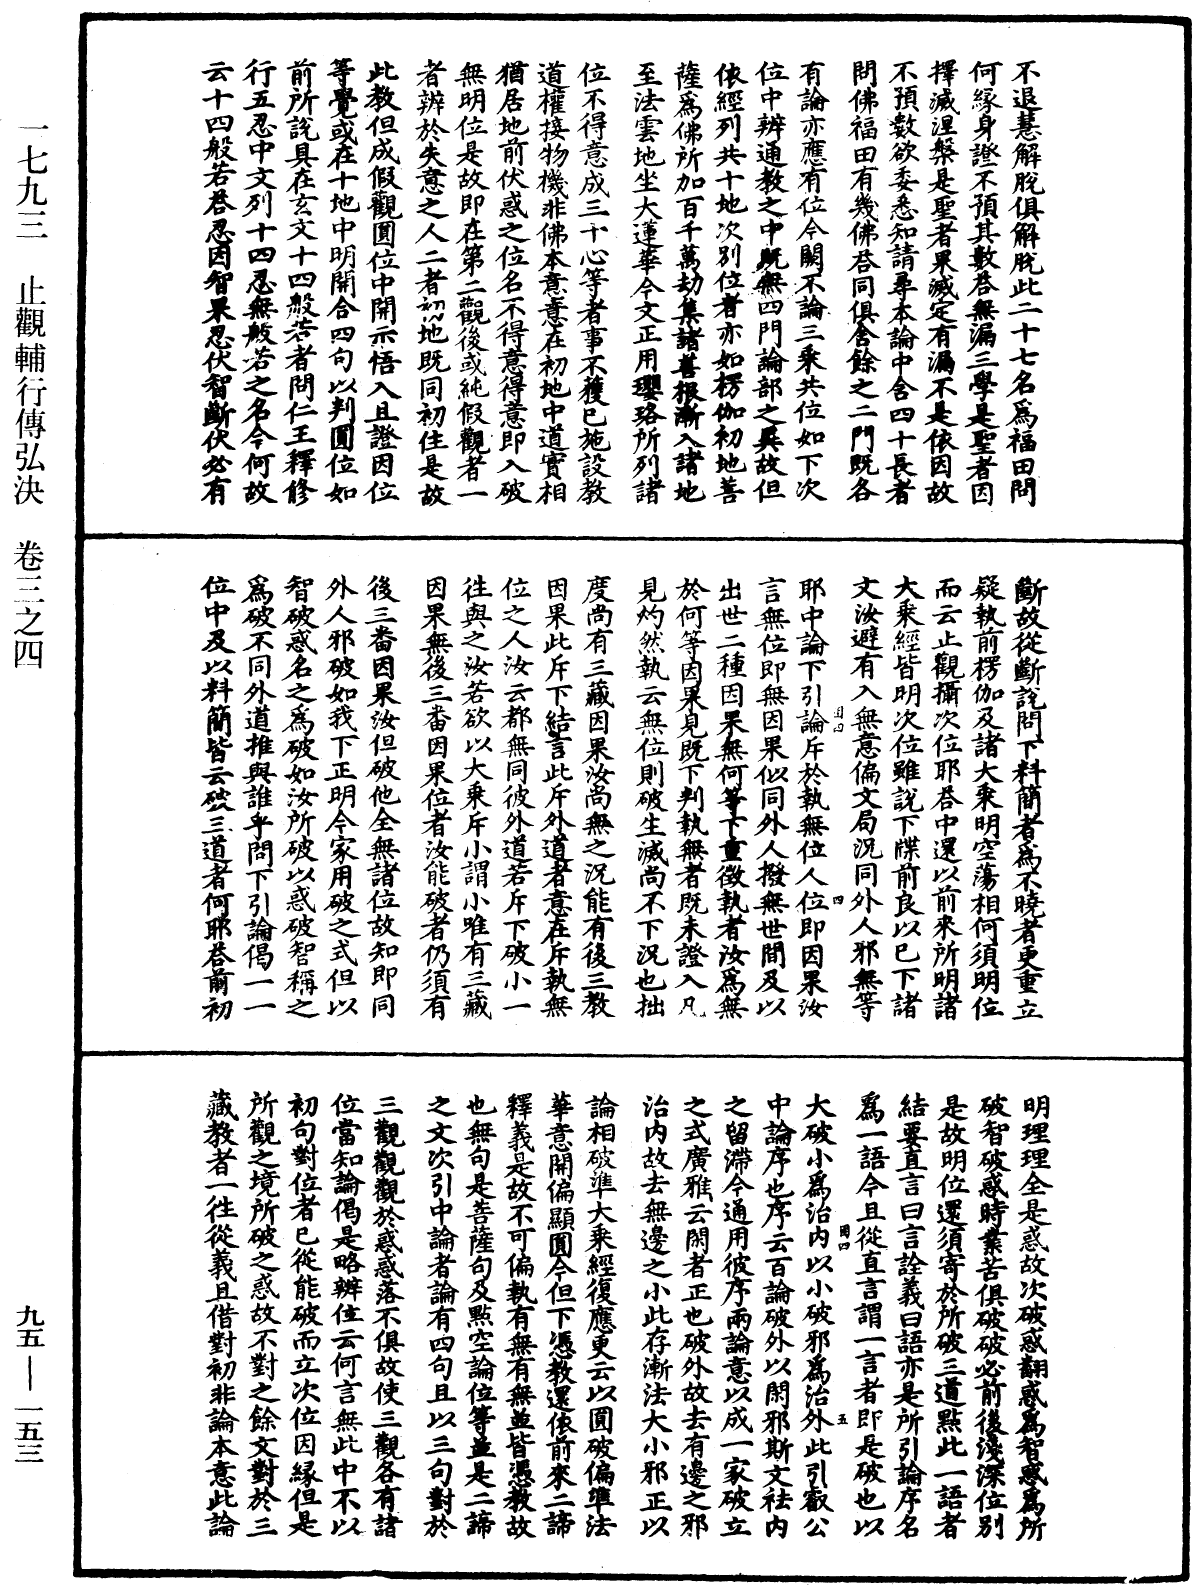 不退慧解脫俱解脫此二十七名為福田問
何緣身證不預其數荅無漏三學是聖者因
擇滅涅槃是聖者果滅定有漏不是依因故
不預數欲委悉知請尋本論中含四十長者
問佛福田有幾佛荅同俱舍餘之二門既各
有論亦應有位今闕不論三乘共位如下次
位中辨通教之中既無四門論部之異故但
依經列共十地次別位者亦如楞伽初地菩
薩為佛所加百千萬劫集諸善根漸入諸地
至法雲地坐大蓮華今文正用瓔珞所列諸
位不得意成三十心等者事不獲已施設教
道權接物機非佛本意意在初地中道實相
猶居地前伏惑之位名不得意得意即入破
無明位是故即在第二觀後或純假觀者一
者辨於失意之人二者初地既同初住是故
此教但成假觀圓位中開示悟入且證因位
等覺或在十地中明開合四句以判圓位如
前所說具在玄文十四般若者問仁王釋修
行五忍中文列十四忍無般若之名今何故
云十四般若荅忍因智果忍伏智斷伏必有
斷故從斷說問下料簡者為不曉者更重立
疑執前楞伽及諸大乘明空蕩相何須明位
而云止觀攝次位耶荅中還以前來所明諸
大乘經皆明次位雖說下牒前良以已下諸
文汝避有入無意偏文局況同外人邪無等
耶中論下引論斥於執無位人位即因果汝
言無位即無因果似同外人撥無世間及以
出世二種因果無何等下重徵執者汝為無
於何等因果見既下判執無者既未證入凡
見灼然執云無位則破生滅尚不下況也拙
度尚有三藏因果汝尚無之況能有後三教
因果此斥下結言此斥外道者意在斥執無
位之人汝云都無同彼外道若斥下破小一
往與之汝若欲以大乘斥小謂小唯有三藏
因果無後三番因果位者汝能破者仍須有
後三番因果汝但破他全無諸位故知即同
外人邪破如我下正明今家用破之式但以
智破惑名之為破如汝所破以惑破智稱之
為破不同外道推與誰乎問下引論偈一一
位中及以料簡皆云破三道者何耶荅前初
明理理全是惑故次破惑翻惑為智惑為所
破智破惑時業苦俱破破必前後淺深位別
是故明位還須寄於所破三道點此一語者
結要直言曰言詮義曰語亦是所引論序名
為一語今且從直言謂一言者即是破也以
大破小為治內以小破邪為治外此引叡公
中論序也序云百論破外以閑邪斯文袪內
之留滯今通用彼序兩論意以成一家破立
之式廣雅云閑者正也破外故去有邊之邪
治內故去無邊之小此存漸法大小邪正以
論相破準大乘經復應更云以圓破偏準法
華意開偏顯圓今但下憑教還依前來二諦
釋義是故不可偏執有無有無並皆憑教故
也無句是菩薩句及點空論位等並是二諦
之文次引中論者論有四句且以三句對於
三觀觀觀於惑惑落不俱故使三觀各有諸
位當知論偈是略辨位云何言無此中不以
初句對位者已從能破而立次位因緣但是
所觀之境所破之惑故不對之餘文對於三
藏教者一往從義且借對初非論本意此論
一七九三　止觀輔行傳弘決　卷三之四
九五—一五三